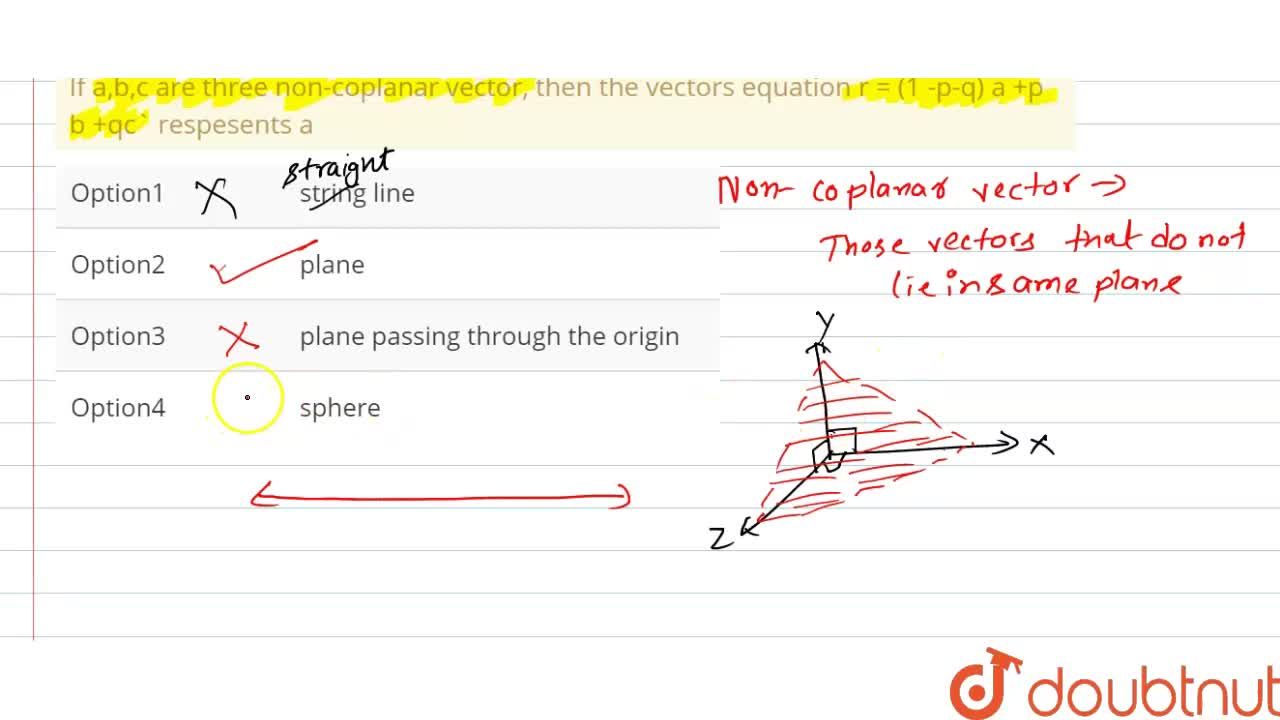 If a,b,c are three non-coplanar vector, then the vectors equation r = (1 -p-q) a +p
b +qc` respesents a
straight
Option1 X string line
Option2 plane
Option3 X plane passing through the origin
Option4 sphere
Non-coplanar vector →
Those vectors that do not
lie in same plane
Y
X
Z
doubtnut